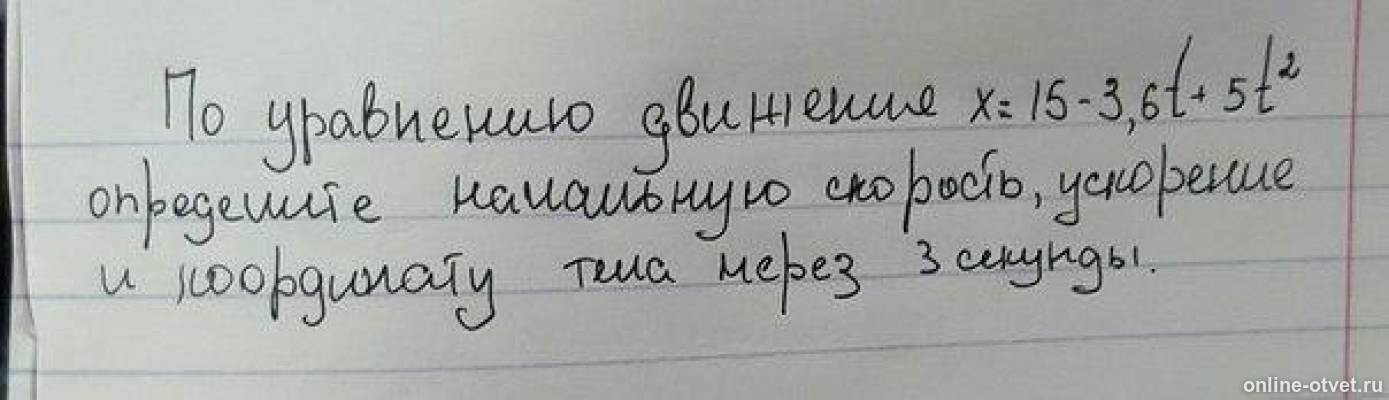 По уравнению движения x = 15 - 3,6t + 5t²
определите начальную скорость, ускорение
и координату тела через 3 секунды.
online-otvet.ru